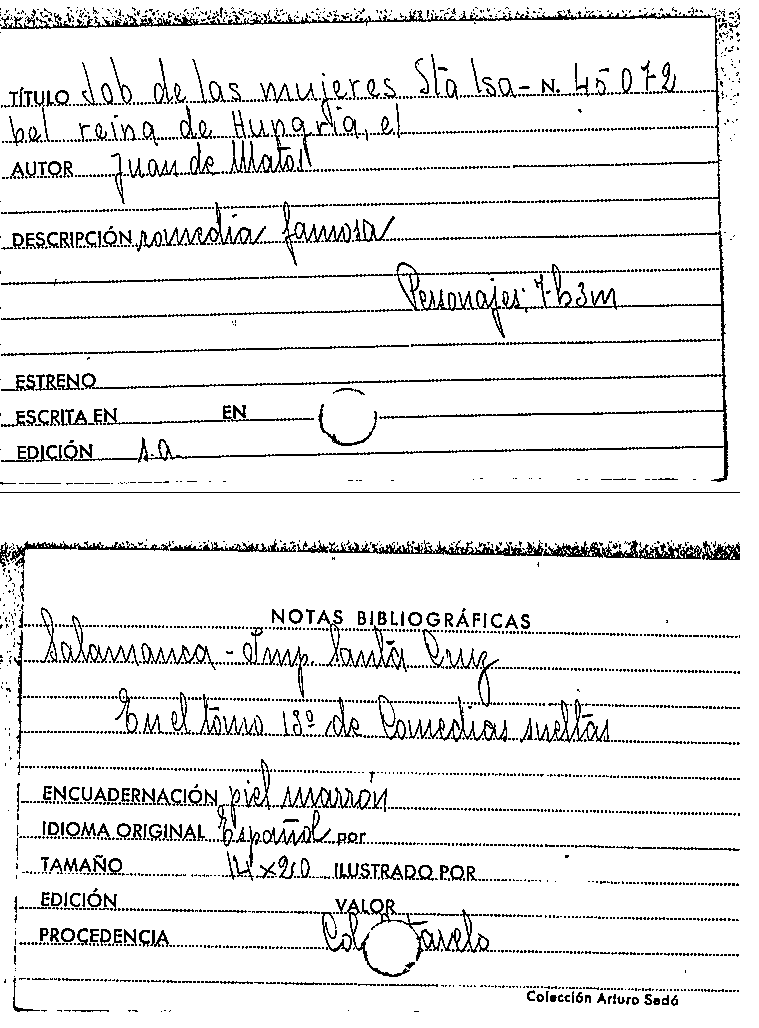 TÍTULO Job de las mujeres Sta Isa- N. 45072
bel reina de Hungria, el
AUTOR Juan de Matos
DESCRIPCIÓN comedia famosa
Personajes: 7h3m
ESTRENO
ESCRITA EN EN
EDICIÓN s.a.
NOTAS BIBLIOGRÁFICAS
Salamanca - Imp. Santa Cruz
En el tomo 18º de Comedias sueltas
ENCUADERNACIÓN piel marrón
IDIOMA ORIGINAL Español por
TAMAÑO 14x20 ILUSTRADO POR
EDICIÓN VALOR
PROCEDENCIA Col
Colección Arturo Sedó